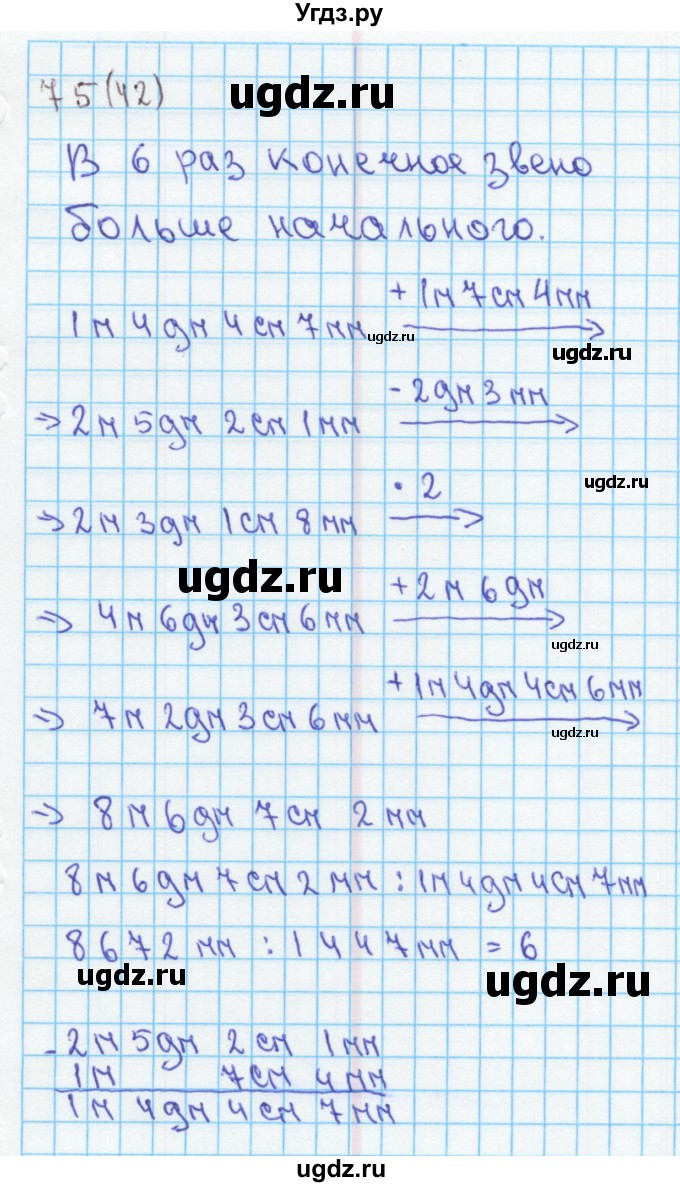 Угдз.ру
75(42) ugdz.ru
В 6 раз конечное звено
больше начального.
+ 1м 7см 4мм
1м 4дм 4см 7мм ugdz.ru
ugdz.ru
- 2дм 3мм
→ 2м 5дм 2см 1мм
· 2 ugdz.ru
→ 2м 3дм 1см 8мм
ugdz.ru + 2м 6дм
→ 4м 6дм 3см 6мм
ugdz.ru
+ 1м 4дм 4см 6мм
→ 7м 2дм 3см 6мм
ugdz.ru
→ 8м 6дм 7см 2мм
8м 6дм 7см 2мм : 1м 4дм 4см 7мм
8672мм : 1447мм = 6
ugdz.ru ugdz.ru
- 2м 5дм 2см 1мм
1м 7см 4мм
1м 4дм 4см 7мм
ugdz.ru